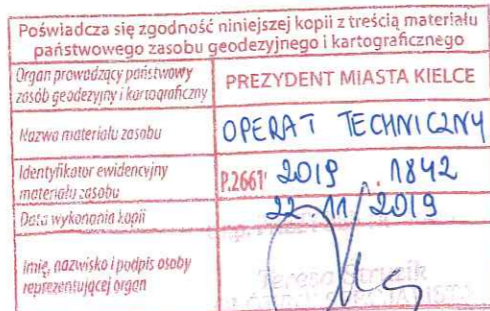 Poświadcza się zgodność niniejszej kopii z treścią materiału
państwowego zasobu geodezyjnego i kartograficznego
Organ prowadzący państwowy
zasób geodezyjny i kartograficzny
PREZYDENT MIASTA KIELCE
Nazwa materiału zasobu
OPERAT TECHNICZNY
Identyfikator ewidencyjny
materiału zasobu
P.2661 2019 . 1842
Data wykonania kopii
22.11/2019
Imię, nazwisko i podpis osoby
reprezentującej organ
Teresa